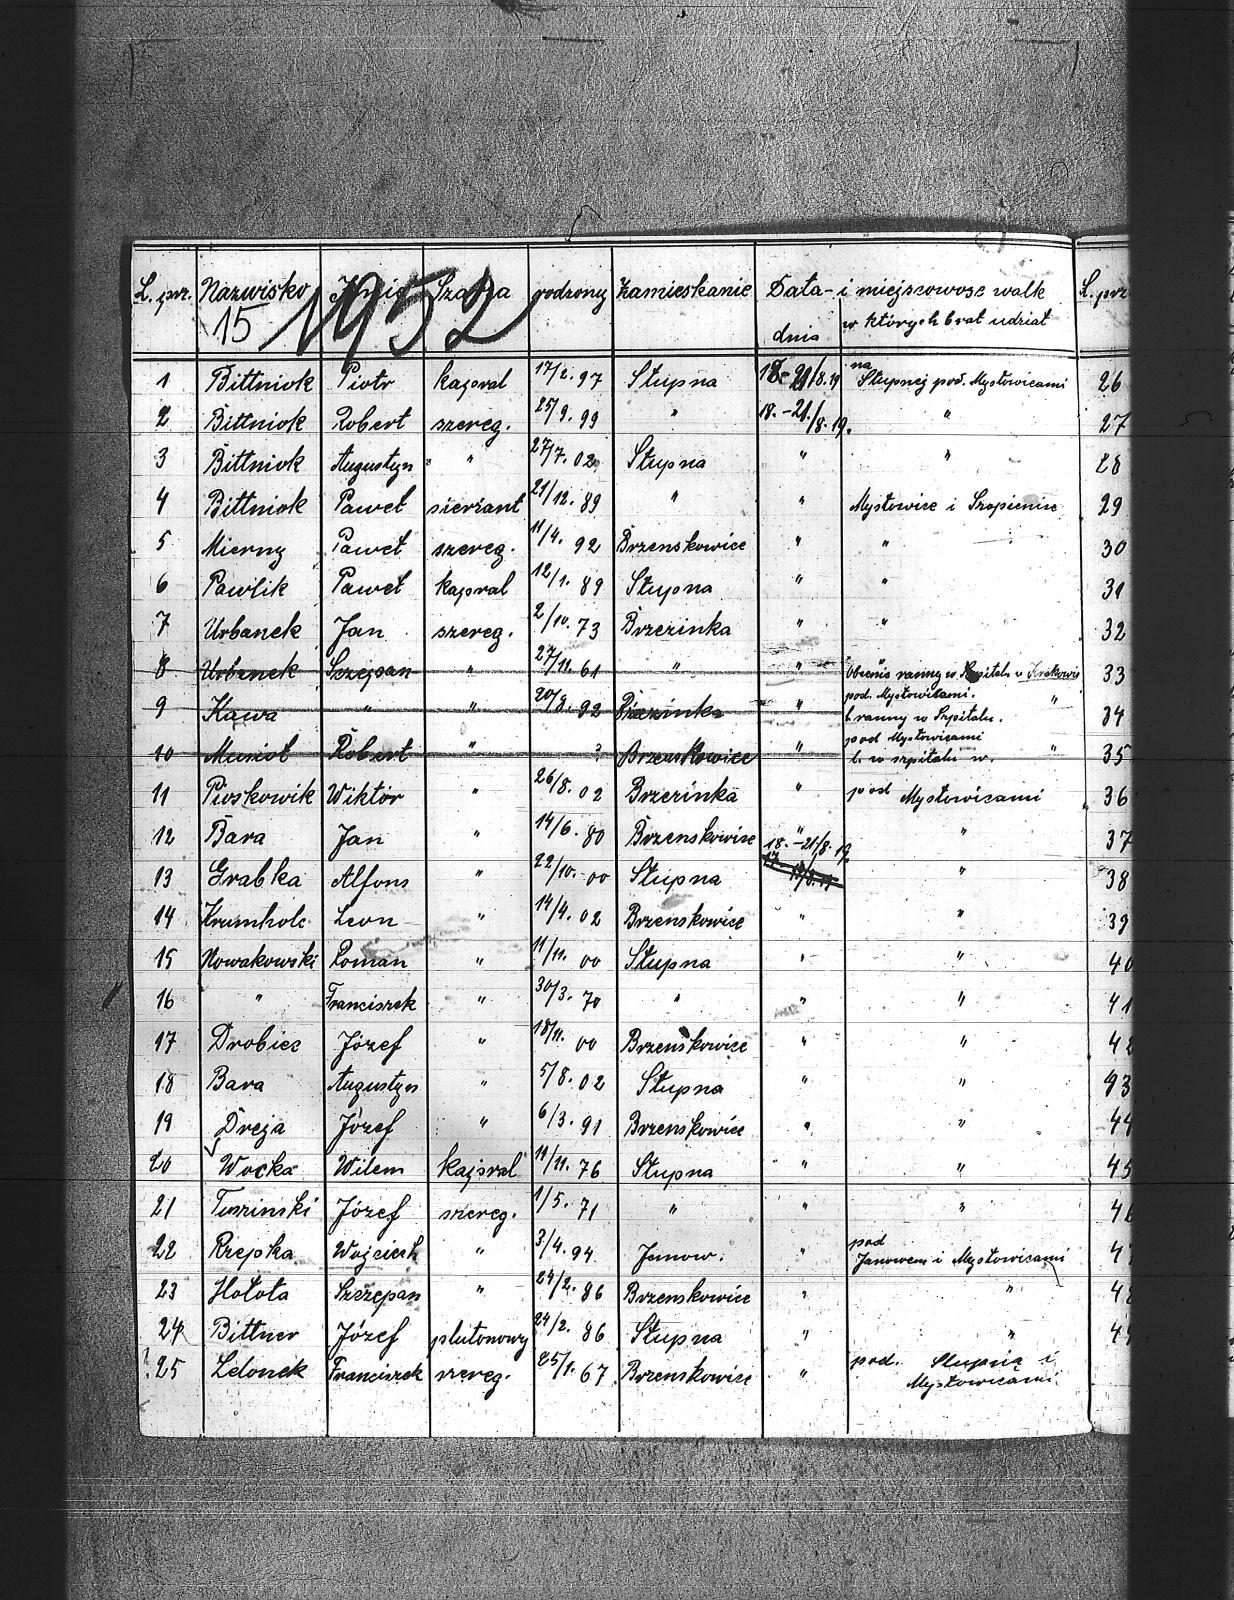 L. prz. Nazwisko Imię Szarża rodzony Zamieszkanie Data i miejscowość walk L. prz
15 1952 dnia w których brał udział
1 Bittniok Piotr kapral 17/2. 97 Słupna 18.-21/8.19 na Słupnej pod. Mysłowicami 26
2 Bittniok Robert szereg. 25/9. 99 " 18.-21./8.19. " 27
3 Bittniok Augustyn " 27/7. 02 Słupna " " 28
4 Bittniok Paweł sierżant 21/12. 89 " " Mysłowice i Szopienice 29
5 Mierny Paweł szereg. 11/4. 92 Brzenskowice " " 30
6 Pawlik Paweł kapral 12/1. 89 Słupna " " 31
7 Urbanek Jan szereg. 2/10. 73 Brzezinka " " 32
8 Urbanek Szczepan " 27/11. 61 " " Obecnie ranny w Szpitalu w Krakowie 33
pod. Mysłowicami.
9 Kawa " " 20/8. 92 Brzezinka " b ranny w Szpitalu. " 34
pod Mysłowicami
10 Musioł Robert " ? Brzenskowice " l. w szpitalu w. " 35
11 Pioskowik Wiktor " 26/8. 02 Brzezinka " pod Mysłowicami 36
12 Bara Jan " 14/6. 80 Brzenskowice " " 37
18.-21/8.19.
13 Grabka Alfons " 22/10. 00 Słupna " 38
14 Krumholc Leon " 14/4. 02 Brzenskowice " " 39
15 Nowakowski Roman " 11/11. 00 Słupna " " 40
16 " Franciszek " 30/3. 70 " " " 41
17 Drobiec Józef " 18/11. 00 Brzenskowice " " 42
18 Bara Augustyn " 5/8. 02 Słupna " " 43
19 Dreja Józef " 6/3. 91 Brzenskowice " " 44
20 Wocka Wilem kapral 11/11. 76 Słupna " " 45
21 Tuszinski Józef szereg. 1/5. 71 " " " 46
22 Rzepka Wojciech " 3/4. 94 Janow. " pod Janowem i Mysłowicami 47
23 Hołota Szczepan " 24/2. 86 Brzenskowice " " 48
24 Bittner Józef plutonowy 24/2. 86 Słupna " " 49
25 Ledonek Franciszek szereg. 25/1. 67 Brzenskowice " pod. Słupną i
Mysłowicami